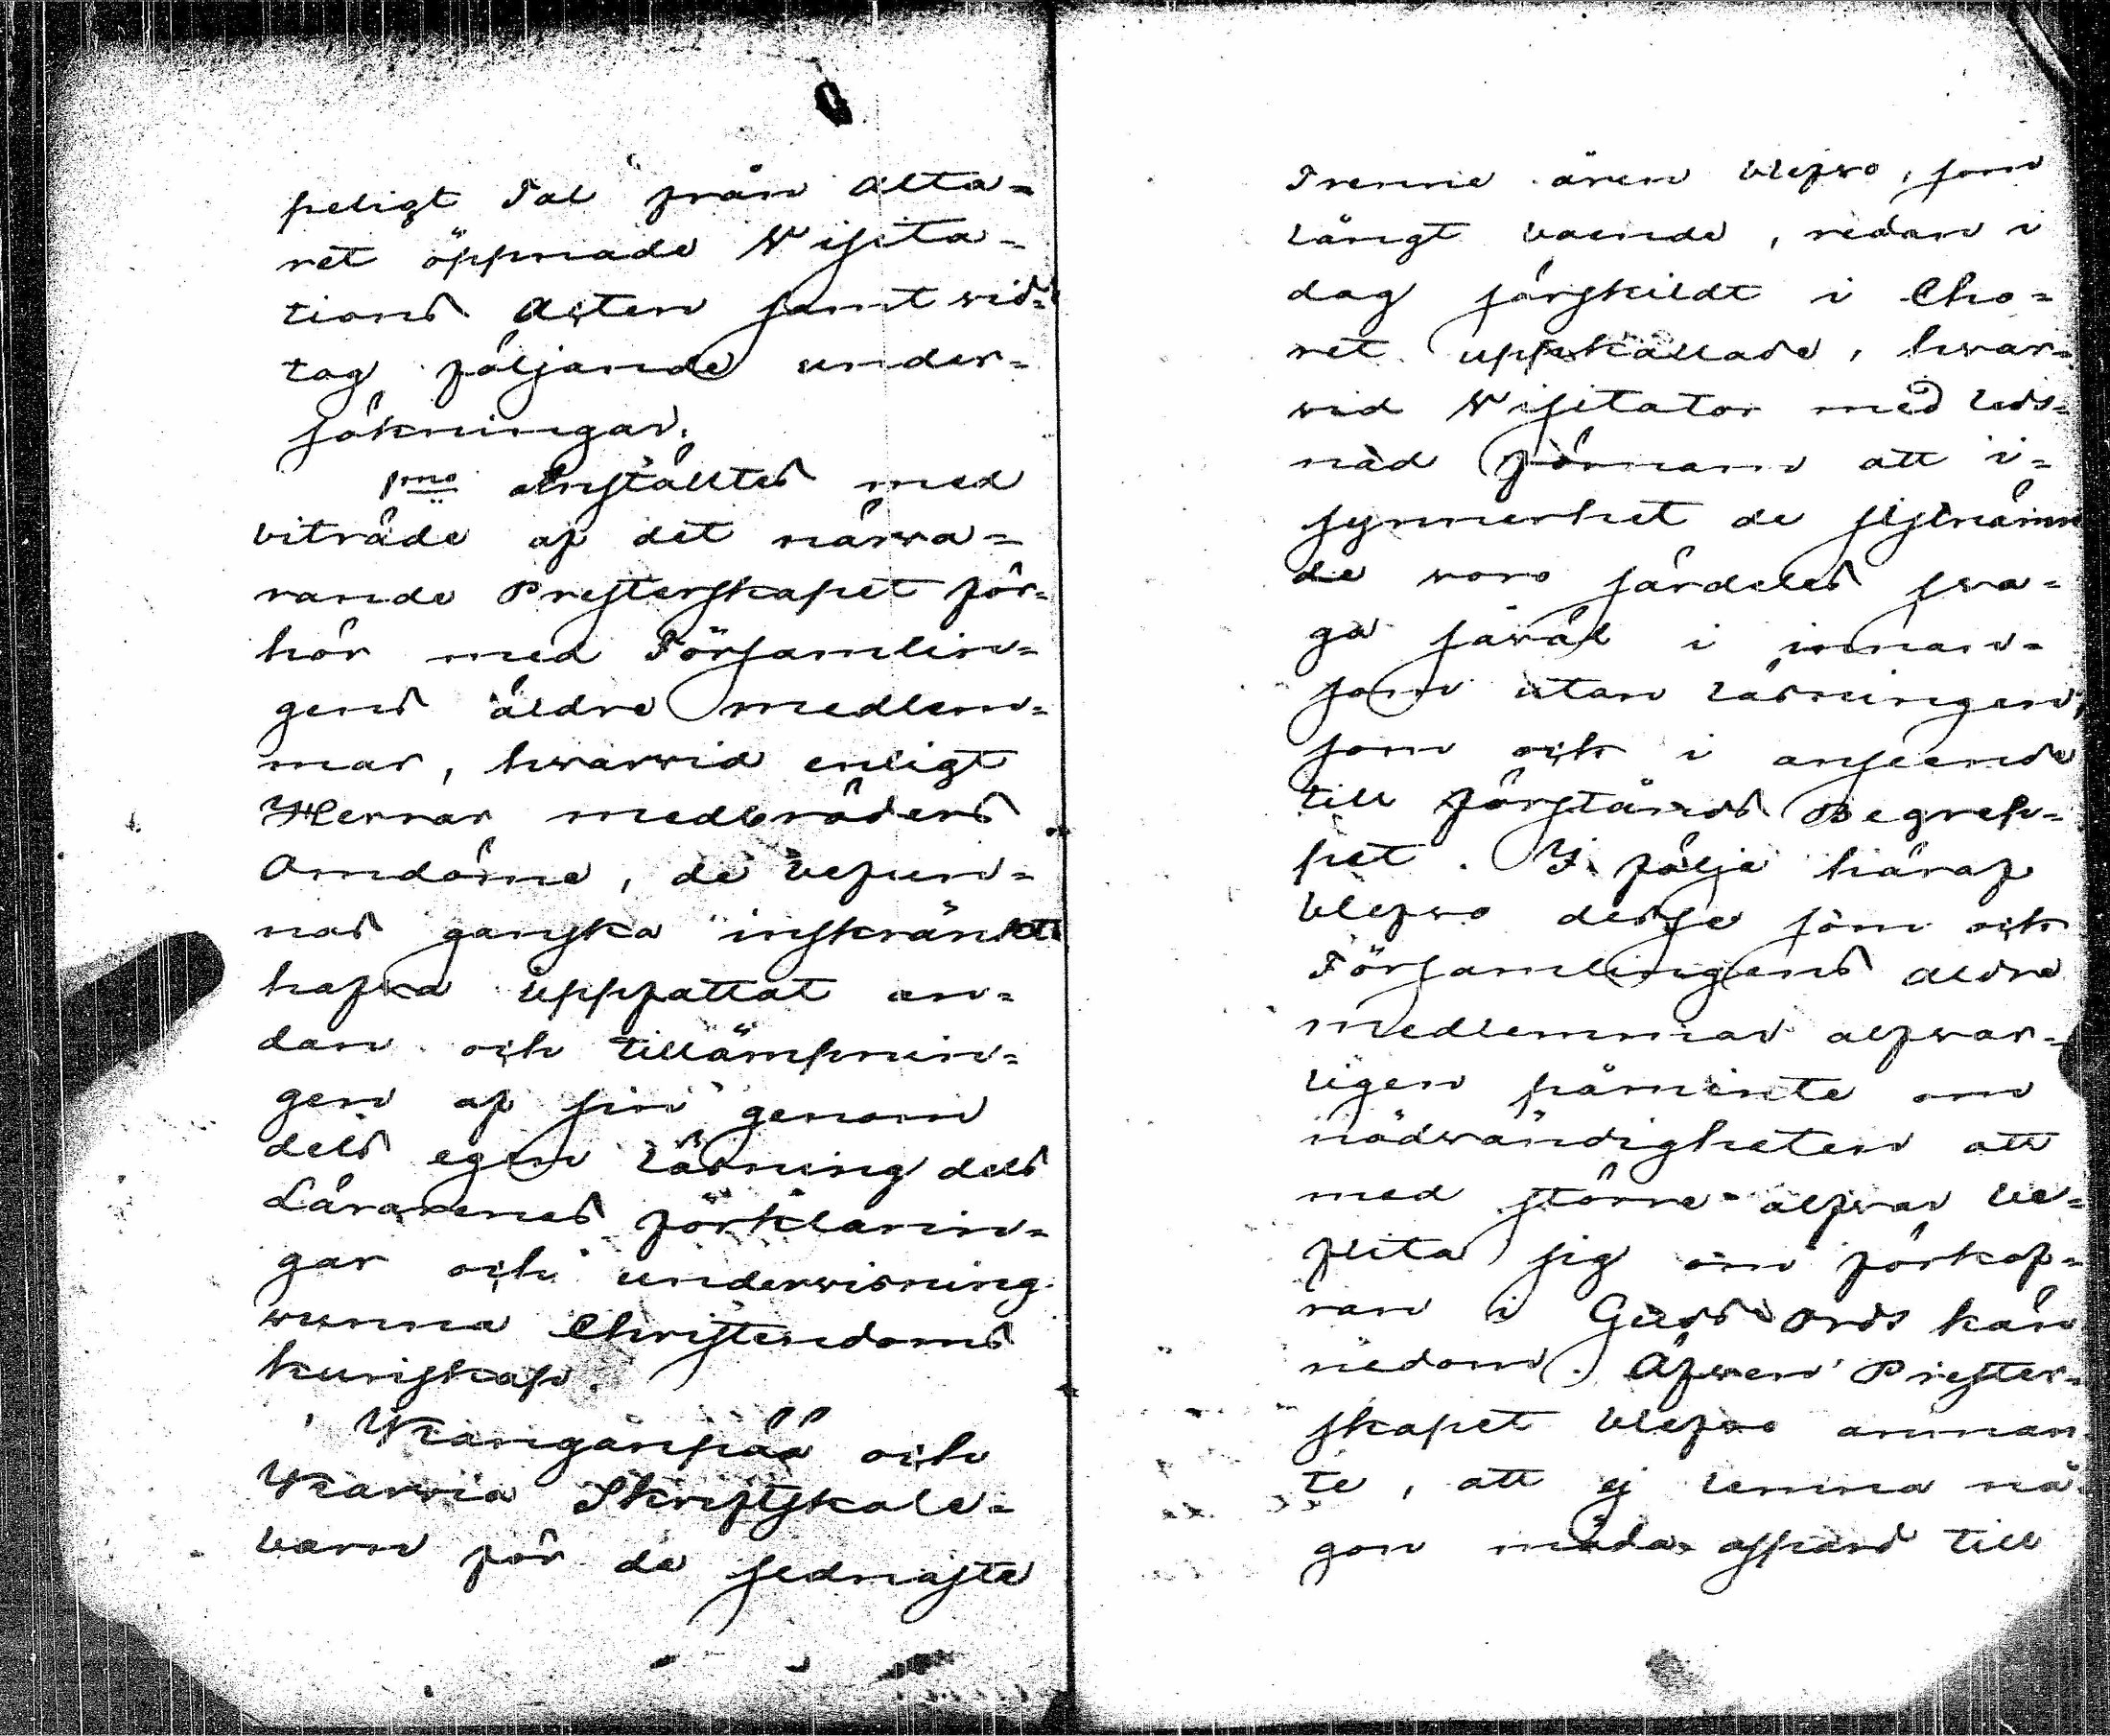 peligt Tal från Alta=
ret öppnade Visita=
tions Acten samt vid=
tog följande under=
sökningar.
1mo Anställtes med
biträde af det närva=
rande Presterskapet för=
hör med Församlin=
gens äldre medlem=
mar, hvarvid enligt
Herrar medbröders
Omdöme, de befun=
nos ganska inskränkt
hafva uppfattat an=
dan och tillämpnin=
gen af sin genom
dels egen läsning dels
Lärarenes förklarin=
gar och undervisning
vunna Christendoms
kunskap.
Kangånpää och
Karvia Skriftskole=
barn för de sednaste
Trenne åren blefvo, som
långt boende, redan i
dag särskildt i Cho=
ret uppkallade, hvar=
vid Visitator med Leds=
nad förnam att i=
synnerhet de sistnämn
de voro särdeles sva=
ga såväl i innan=
som utan läsningen,
som och i anseende
till förstånds Begrep=
pet. I följe häraf
blefvo desse som och
Församlingens äldre
medlemmar alfvar=
ligen påminte om
nödvändigheten att
med större alfvar be=
flita sig om förkof=
ran i Guds Ords kän
nedom. Äfven Prester=
skapet blefvo anman
te, att ej lemna nå=
gon möda ospard till